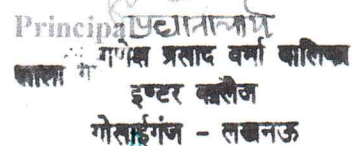 Principal प्रधानाचार्य
गणेश प्रसाद वर्मा बालिका
इण्टर कालेज
गोसाईगंज - लखनऊ